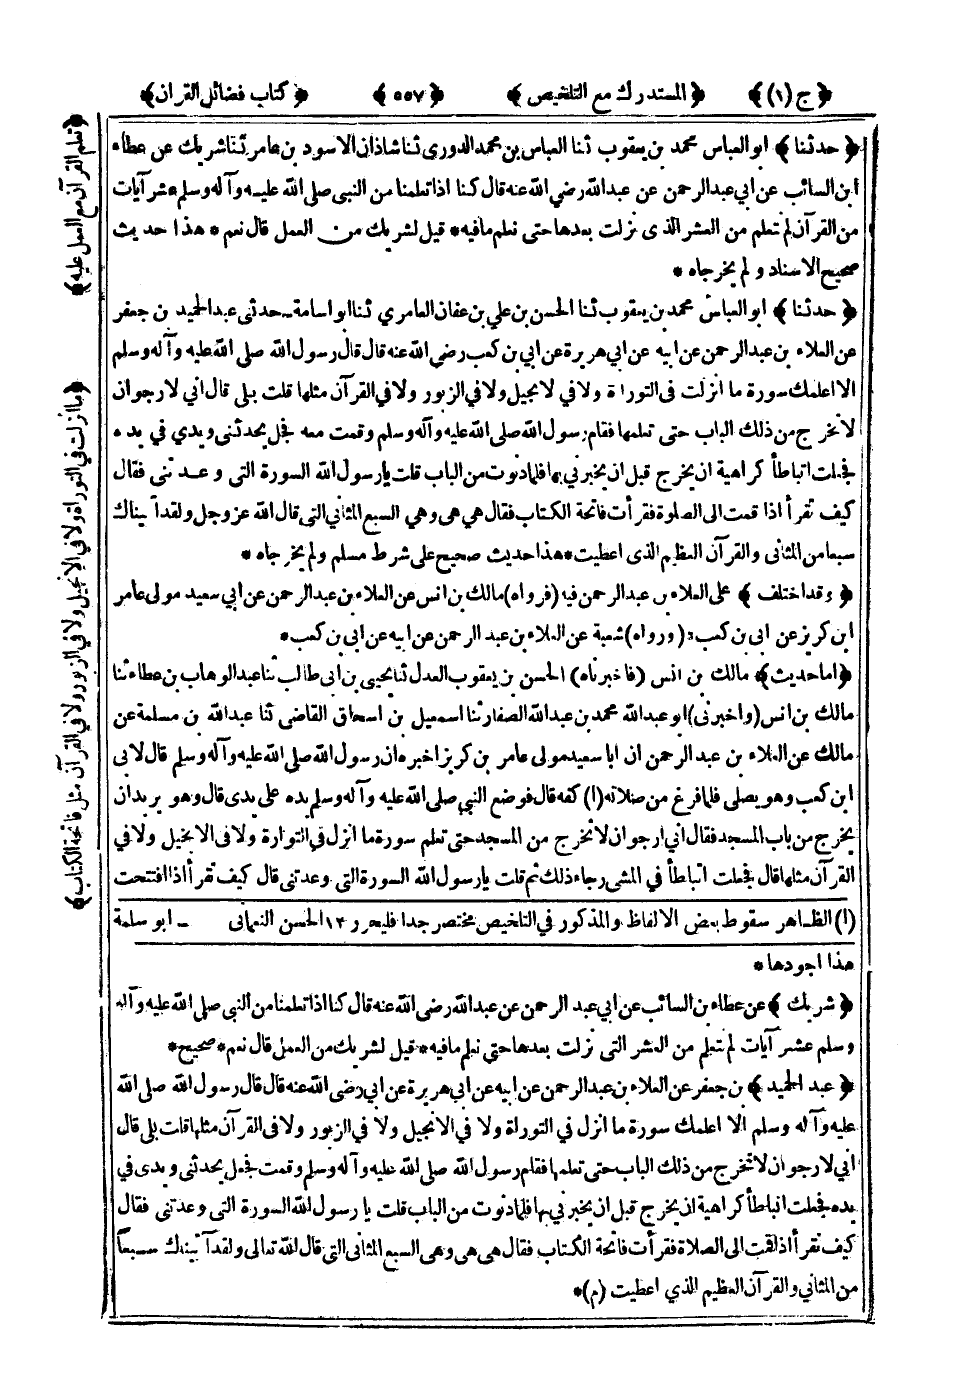 ﴿ ج (١) ﴾ ﴿ المستدرك مع التلخيص ﴾ ﴿ ٥٥٧ ﴾ ﴿ كتاب فضائل القرآن ﴾
﴿ حدثنا ﴾ ابو العباس محمد بن يعقوب ثنا العباس بن محمد الدورى ثنا شاذان الاسود بن عامر ثنا شريك عن عطاء
ابن السائب عن ابي عبد الرحمن عن عبد الله رضي الله عنه قال كنا اذا تعلمنا من النبى صلى الله عليه وآله وسلم عشر آيات
من القرآن لم نتعلم من العشر الذى نزلت بعدها حتى نعلم ما فيه * قيل لشريك من العمل قال نعم * هذا حديث
صحيح الاسناد ولم يخرجاه *
﴿ حدثنا ﴾ ابو العباس محمد بن يعقوب ثنا الحسن بن علي بن عفان العامري ثنا ابو اسامة حدثنى عبد الحميد بن جعفر
عن العلاء بن عبد الرحمن عن ابيه عن ابي هريرة عن ابي بن كعب رضى الله عنه قال قال رسول الله صلى الله عليه وآله وسلم
الا اعلمك سورة ما انزلت فى التوراة ولا في لانجيل ولا في الزبور ولا في القرآن مثلها قلت بلى قال اني لارجو ان
لا تخرج من ذلك الباب حتى تعلمها فقام رسول الله صلى الله عليه وآله وسلم وقمت معه فجعل يحدثنى ويدي في يده
فجعلت اتباطأ كراهية ان يخرج قبل ان يخبرني بها فلما دنوت من الباب قلت يا رسول الله السورة التى وعدتنى فقال
كيف تقرأ اذا قمت الى الصلوة فقرأت فاتحة الكتاب فقال هي هى وهي السبع المثاني التى قال الله عز وجل ولقد آتيناك
سبعا من المثانى والقرآن العظيم الذى اعطيت * هذا حديث صحيح على شرط مسلم ولم يخرجاه *
﴿ وقد اختلف ﴾ على العلاء بن عبد الرحمن فيه (فرواه) مالك بن انس عن العلاء بن عبد الرحمن عن ابي سعيد مولى عامر
ابن كريز عن ابى بن كعب (ورواه) شعبة عن العلاء بن عبد الرحمن عن ابيه عن ابى بن كعب *
﴿ اما حديث ﴾ مالك بن انس (فاخبرناه) الحسن بن يعقوب العدل ثنا يحيى بن ابى طالب ثنا عبد الوهاب بن عطاء ثنا
مالك بن انس (واخبرنى) ابو عبد الله محمد بن عبد الله الصفار ثنا اسمعيل بن اسحاق القاضى ثنا عبد الله بن مسلمة عن
مالك عن العلاء بن عبد الرحمن ان ابا سعيد مولى عامر بن كريز اخبره ان رسول الله صلى الله عليه وآله وسلم قال لابى
ابن كعب وهو يصلى فلما فرغ من صلاته (١) كفه قال فوضع النبي صلى الله عليه وآله وسلم يده على يدى قال وهو يريد ان
يخرج من باب المسجد فقال اني ارجو ان لا تخرج من المسجد حتى تعلم سورة ما انزل في التوارة ولا فى الانجيل ولا في
القرآن مثلها قال فجعلت اتباطأ في المشى رجاء ذلك ثم قلت يا رسول الله السورة التى وعدتنى قال كيف تقرأ اذا افتتحت
(١) الظاهر سقوط بعض الالفاظ والمذكور في التلخيص مختصر جدا فليحرر ١٢ الحسن النعمانى ـ ابو سلمة
هذا اجودها *
﴿ شريك ﴾ عن عطاء بن السائب عن ابي عبد الرحمن عن عبد الله رضى الله عنه قال كنا اذا تعلمنا من النبي صلى الله عليه وآله
وسلم عشر آيات لم نتعلم من العشر التى نزلت بعدها حتى نعلم ما فيه * قيل لشريك من العمل قال نعم * صحيح *
﴿ عبد الحميد ﴾ بن جعفر عن العلاء بن عبد الرحمن عن ابيه عن ابي هريرة عن ابي رضى الله عنه قال قال رسول الله صلى الله
عليه وآله وسلم الا اعلمك سورة ما انزل في التوراة ولا في الانجيل ولا في الزبور ولا فى القرآن مثلها قلت بلى قال
اني لارجو ان لا تخرج من ذلك الباب حتى تعلمها فقام رسول الله صلى الله عليه وآله وسلم وقمت فجعل يحدثنى ويدى في
يده فجعلت اتباطأ كراهية ان يخرج قبل ان يخبرني بها فلما دنوت من الباب قلت يا رسول الله السورة التى وعدتنى فقال
كيف تقرأ اذا قمت الى الصلاة فقرأت فاتحة الكتاب فقال هى هى وهى السبع المثانى التى قال الله تعالى ولقد آتيناك سبعاً
من المثاني والقرآن العظيم الذي اعطيت (م) *
﴿ تعلم القرآن مع العمل عليه ﴾
﴿ ما أنزلت في التوراة ولا في الانجيل ولا في الزبور ولا في القرآن مثل فاتحة الكتاب ﴾